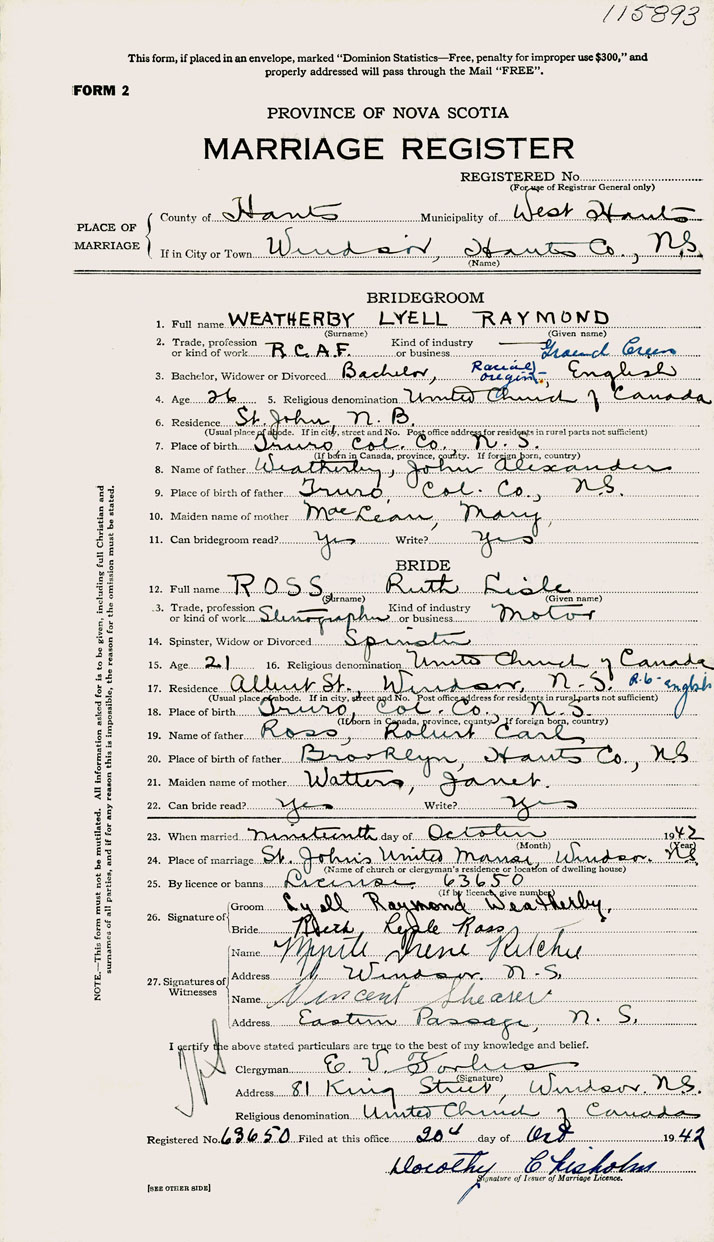 115893
This form, if placed in an envelope, marked "Dominion Statistics—Free, penalty for improper use $300," and
properly addressed will pass through the Mail "FREE".
FORM 2
PROVINCE OF NOVA SCOTIA
MARRIAGE REGISTER
REGISTERED No.
(For use of Registrar General only)
PLACE OF MARRIAGE
County of Hants Municipality of West Hants
If in City or Town Windsor, Hants Co., N.S.
(Name)
BRIDEGROOM
1. Full name WEATHERBY LYELL RAYMOND
(Surname) (Given name)
2. Trade, profession or kind of work R.C.A.F. Kind of industry or business Ground Crew
3. Bachelor, Widower or Divorced Bachelor, Racial origin. English
4. Age 26 5. Religious denomination United Church of Canada
6. Residence St. John, N. B.
(Usual place of abode. If in city, street and No. Post office address for residents in rural parts not sufficient)
7. Place of birth Truro Col. Co., N. S.
(If born in Canada, province, county. If foreign born, country)
8. Name of father Weatherby, John Alexander
9. Place of birth of father Truro, Col. Co., N.S.
10. Maiden name of mother MacLean, Mary,
11. Can bridegroom read? Yes Write? Yes
BRIDE
12. Full name ROSS, Ruth Lisle
(Surname) (Given name)
13. Trade, profession or kind of work Stenographer Kind of industry or business Motor
14. Spinster, Widow or Divorced Spinster
15. Age 21 16. Religious denomination United Church of Canada
17. Residence Albert St., Windsor, N.S. R.O- English
(Usual place of abode. If in city, street and No. Post office address for residents in rural parts not sufficient)
18. Place of birth Truro, Col. Co., N.S.
(If born in Canada, province, county. If foreign born, country)
19. Name of father Ross, Robert Carl
20. Place of birth of father Brooklyn, Hants Co., NS
21. Maiden name of mother Watters, Janet.
22. Can bride read? Yes Write? Yes
23. When married nineteenth day of October 1942
(Month) (Year)
24. Place of marriage St. John's United Manse, Windsor. N.S.
(Name of church or clergyman's residence or location of dwelling house)
25. By licence or banns License 63650
(If by licence, give number)
26. Signature of
Groom Lyell Raymond Weatherby,
Bride Ruth Lysle Ross
27. Signatures of Witnesses
Name Myrtle Irene Ritchie
Address Windsor. N.S.
Name Vincent Shearer
Address Eastern Passage, N. S.
I certify the above stated particulars are true to the best of my knowledge and belief.
Clergyman E. V. Forbes
(Signature)
Address 81 King Street, Windsor. N.S.
Religious denomination United Church of Canada
Registered No. 63650 Filed at this office 20th day of Oct 1942
Dorothy Chisholm
Signature of Issuer of Marriage Licence.
[SEE OTHER SIDE]
NOTE.—This form must not be mutilated. All information asked for is to be given, including full Christian and
surnames of all parties, and if for any reason this is impossible, the reason for the omission must be stated.